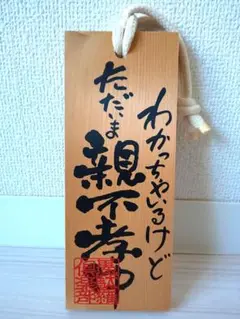 わかっちゃいるけど
ただいま
親不孝中